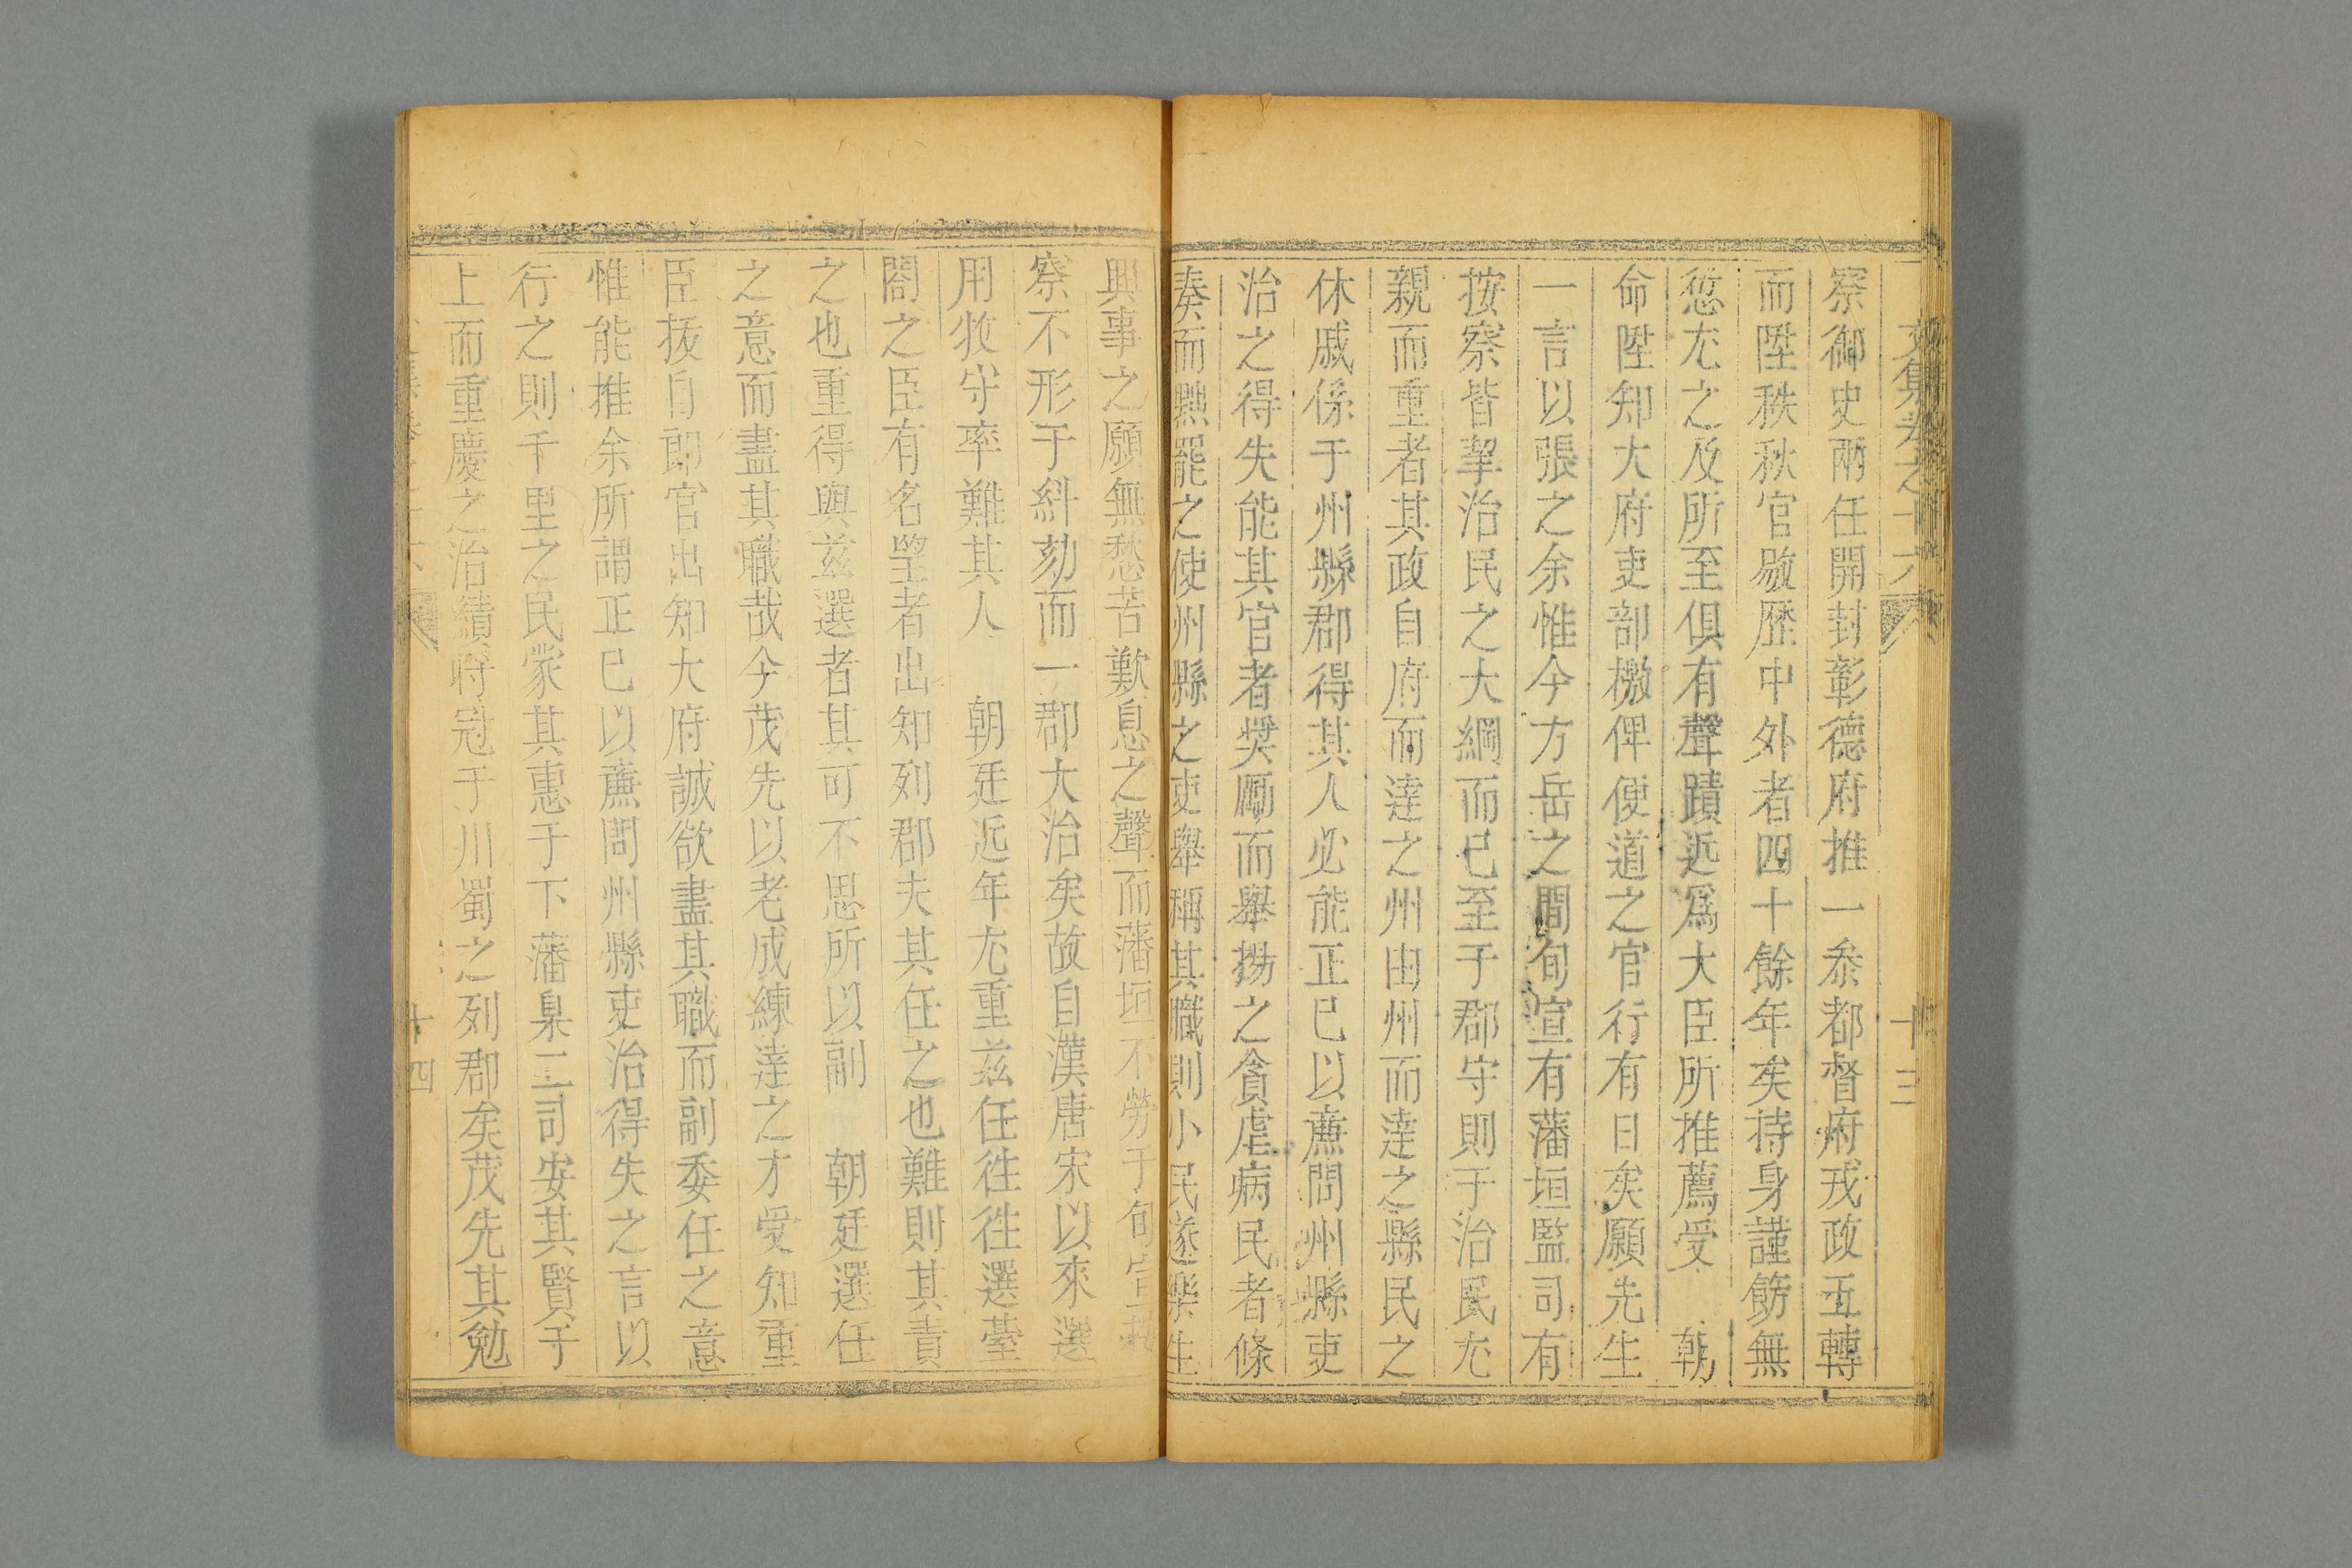 文集卷之十六
十三
察御史兩任開封彰德府推一叅都督府戎政五轉
而陞秩秋官敭歷中外者四十餘年矣持身謹飭無
愆尤之及所至俱有聲蹟近爲大臣所推薦受　朝
命陞知大府吏部檄俾便道之官行有日矣願先生
一言以張之余惟今方岳之間旬宣有藩垣監司有
按察皆挈治民之大綱而已至于郡守則于治民尤
親而重者其政自府而達之州由州而達之縣民之
休戚係于州縣郡得其人必能正已以亷問州縣吏
治之得失能其官者奨勵而舉揚之貪虐病民者條
奏而黜罷之使州縣之吏舉稱其職則小民遂樂生
興事之願無愁苦歎息之聲而藩垣不勞于旬宣按
察不形于糾劾而一郡大治矣故自漢唐宋以來選
用牧守率難其人　朝廷近年尤重兹任徃徃選臺
閤之臣有名望者出知列郡夫其任之也難則其責
之也重得與兹選者其可不思所以副　朝廷選任
之意而盡其職哉今茂先以老成練達之才受知重
臣拔自郎官出知大府誠欲盡其職而副委任之意
惟能推余所謂正已以亷問州縣吏治得失之言以
行之則千里之民蒙其惠于下藩臬二司安其賢于
上而重慶之治績將冠于川蜀之列郡矣茂先其勉
十四